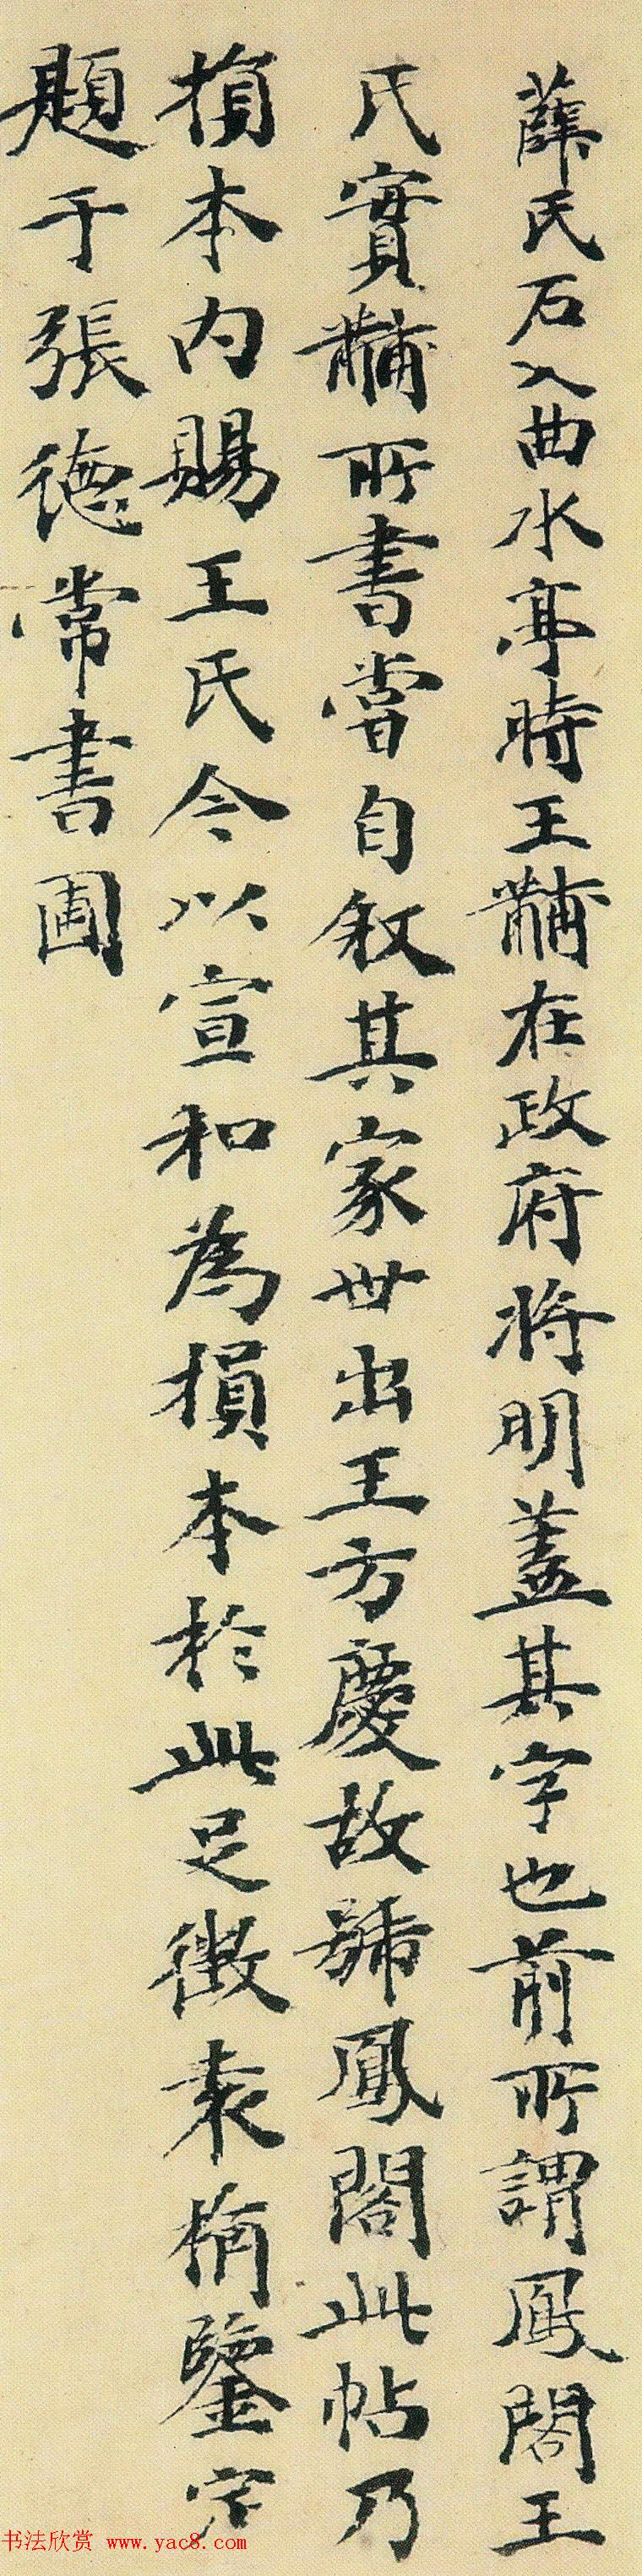 薛氏石入曲水亭時王黼在政府將明蓋其字也前所謂鳳閣王
氏實黼所書嘗自敘其家世出王方慶故號鳳閣此帖乃
損本内賜王氏今以宣和為損本於此足徴袁桷鑒定
題于張德常書圃
书法欣赏 www.yac8.com